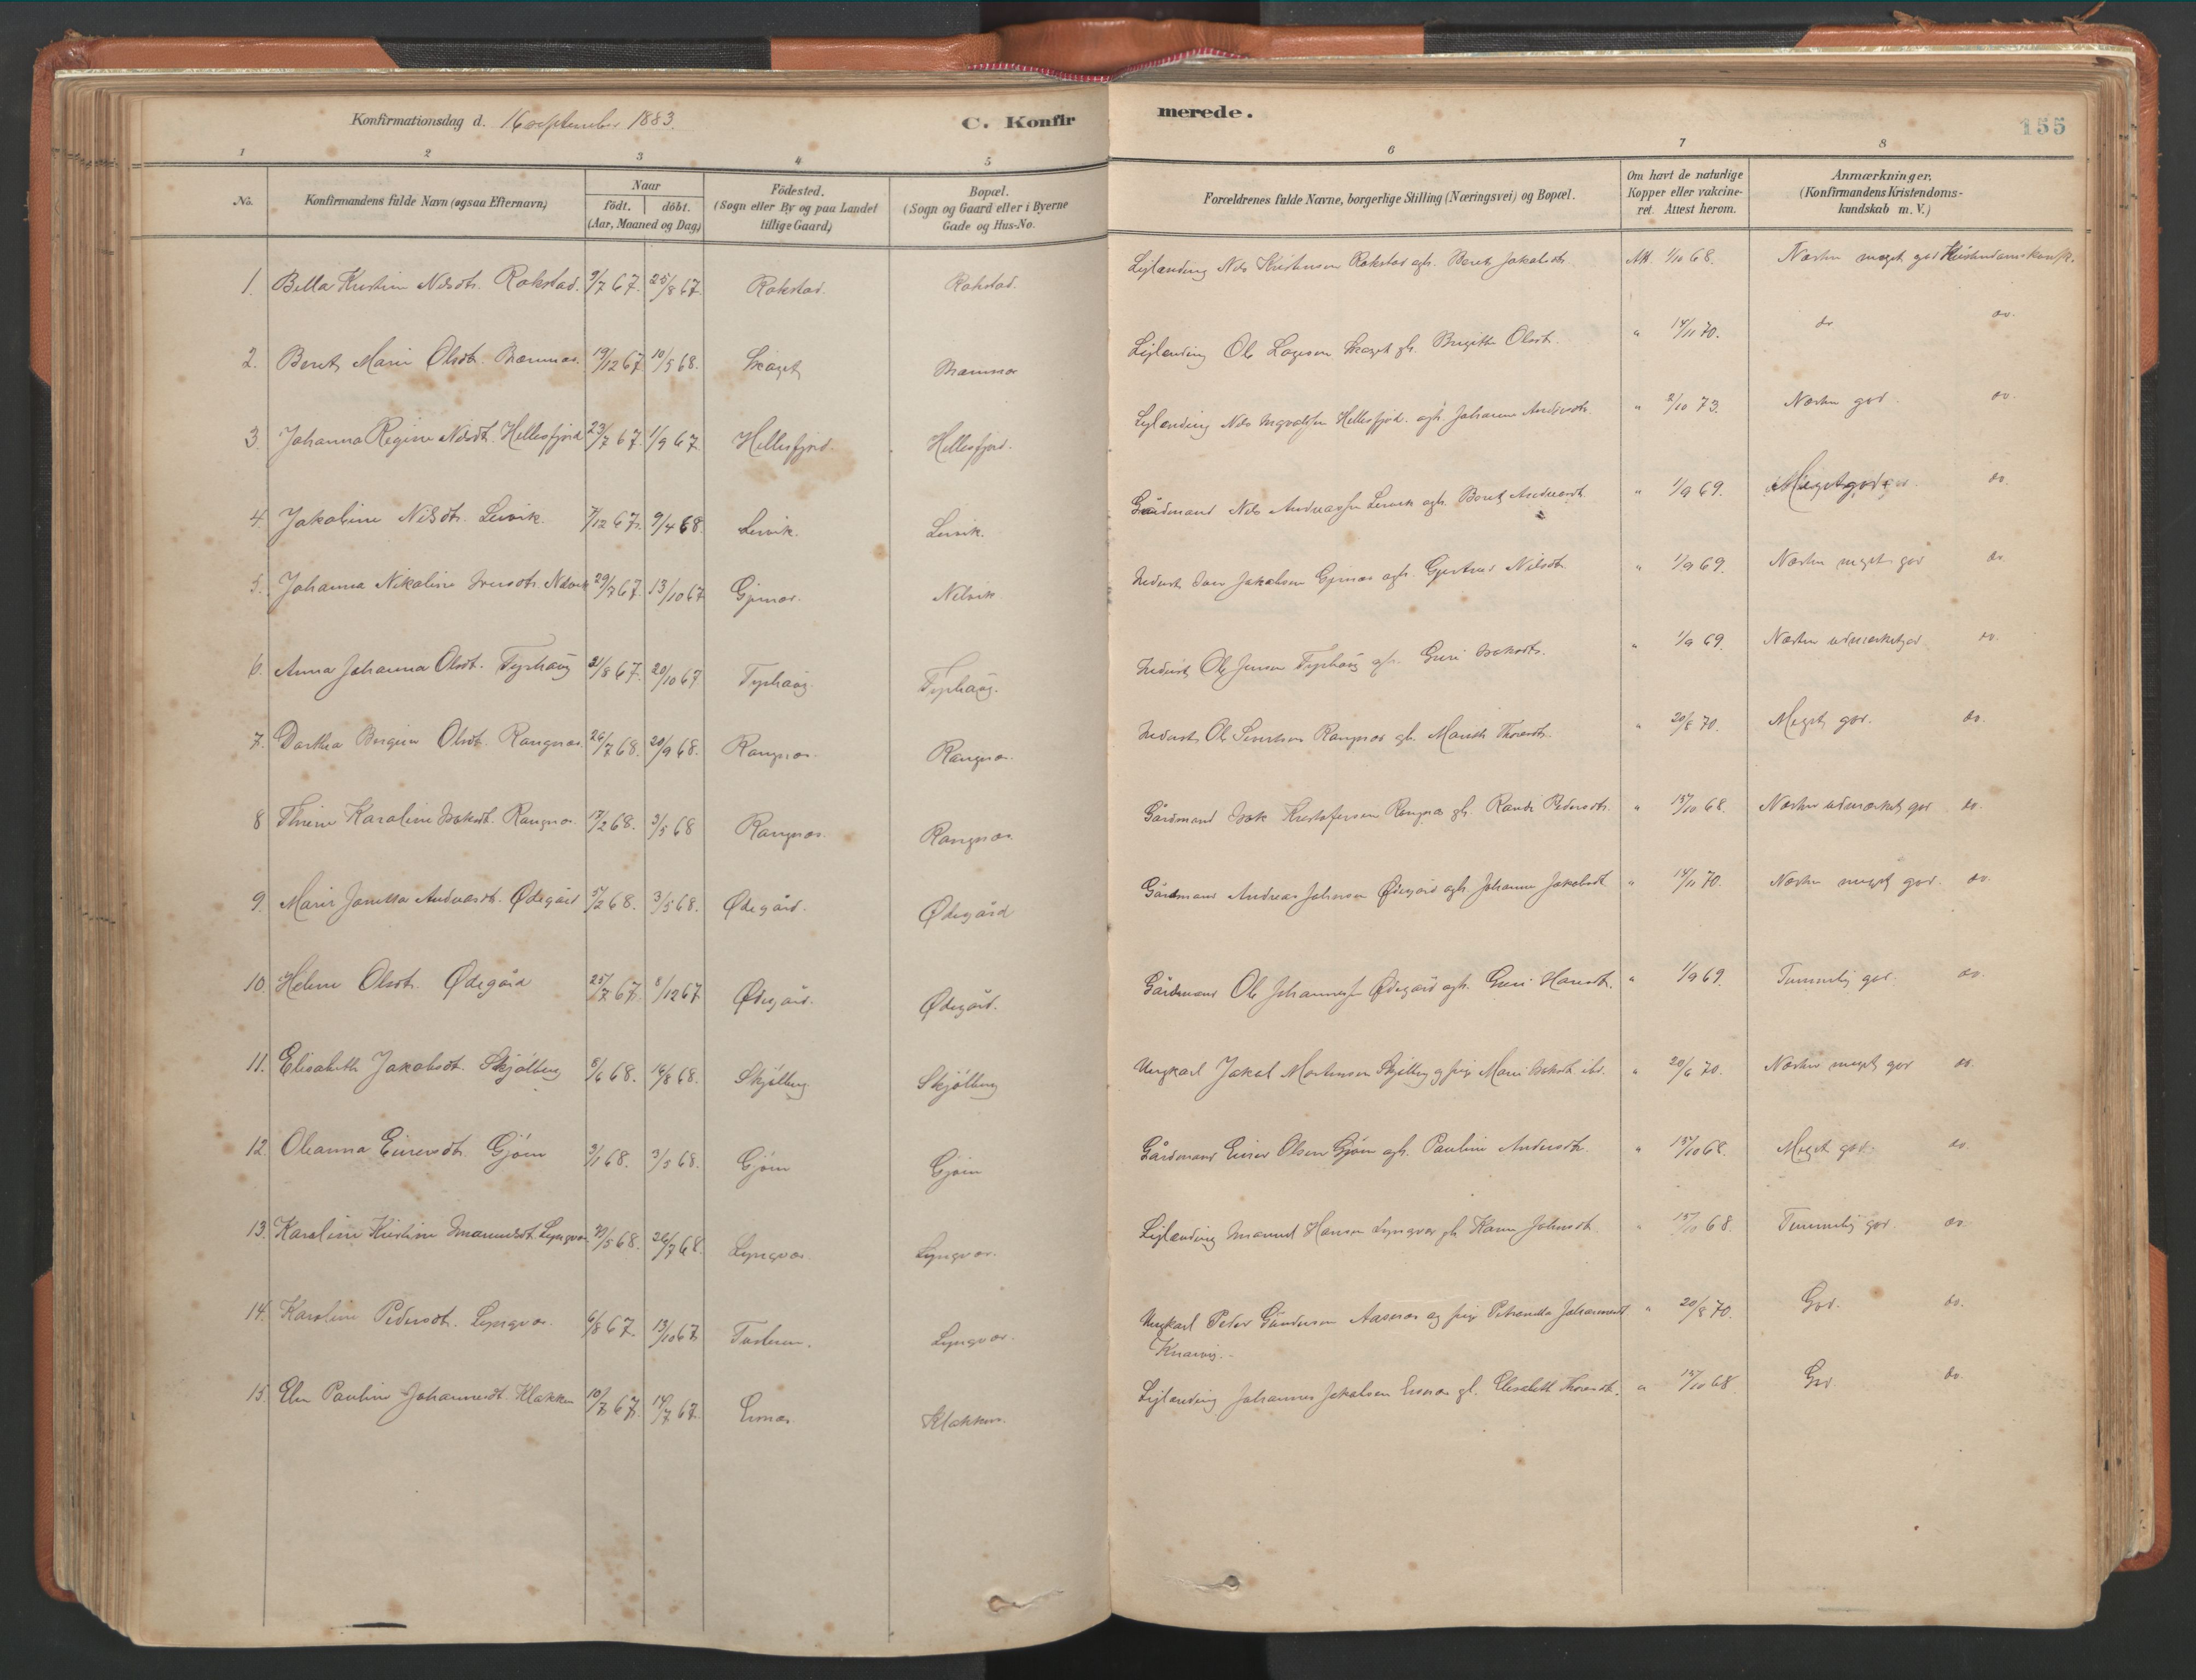 Konfirmationsdag d. 16 september 1883. C. Konfirmerede. 155
1 2 3 4 5 6 7 8
No. Konfirmandens fulde Navn (ogsaa Efternavn) Naar födt. döbt. (Aar, Maaned og Dag) Födested. (Sogn eller By og paa Landet tillige Gaard) Bopæl. (Sogn og Gaard eller i Byerne Gade og Hus-No. Forældrenes fulde Navne, borgerlige Stilling (Næringsvei) og Bopæl. Om havt de naturlige Kopper eller vakcineret. Attest herom. Anmærkninger. (Konfirmandens Kristendomskundskab m. V.)
1. Bella Kristine Nilsdtr. Rokstad. 9/7 67. 25/8 67. Rokstad. Rokstad. Leilænding Nils Kristensen Rokstad ogh. Beret Jakobsdtr. Att. 1/10 68. Næsten meget god Kristendomskunsk.
2. Beret Marie Olsdtr. 19/12 67 10/5 68. Skaget Leilænding Ole Skaget gh. Brigitte Olsdt. " 14/11 70. do do.
3. Johanna Regine Nilsdt. Hellesfjord 23/7 67. 1/9 67. Hellesfjord. Hellesfjord. Leilænding Nils Hellesfjord. ogh. Johanna Andersdtr. " 2/10 73. Næsten god. do.
4. Jakobine Nilsdtr. Leirvik. 7/12 67. 9/4 68. Leirvik. Leirvik. Gårdmand Nils Andreassen Leirvik ogh. Beret Andreasdt. " 1/9 69. Meget god do.
5. Johanna Nikoline Iversdtr. Nelvik 29/7 67. 13/10 67 Nelvik Inderst Iver Jakobsen ogh. Gjertrud Nilsdt. " 1/9 69. Næsten meget god do.
6. Anna Johanna Olsdt. Tyrhaug 21/8 67. 20/10 67 Tyrhaug. Tyrhaug. Inderst Ole Jensen Tyrhaug gh. Guri Isaksdtr. " 1/9 69. Næsten udmærket god do.
7. Dorthea Bergine Olsdt. Rangnæs. 26/7 68. 20/9 68. Rangnæs. Rangnæs. Inderst Ole Sivertsen Rangnæs gh. Marith Thoresdtr. " 20/8 70. Meget god. do.
8 Thrine Karoline Isaksdt. Rangnæs. 17/2 68. 3/5 68 Rangnæs. Rangnæs. Gårdmand Isak Kristofersen Rangnæs gh. Randi Pedersdtr. " 15/10 68. Næsten udmærket god do.
9. Marie Andreasdt. Ødegård 5/2 68. 3/5 68. Ødegård. Ødegård Gårdmand Andreas Johnsen Ødegård ogh. Johanna Jakobsdt. " 14/11 70. Næsten meget god. do.
10. Helene Olsdtr. Ødegård 25/7 67. 8/12 67 Ødegård. Ødegård. Gårdmand Ole Johannessen Ødegård ogh. Guri Hansdt. " 1/9 69. Temmelig god. do.
11. Elisabeth Jakobsdt. Skjølberg 8/6 68. 16/8 68. Skjølberg Skjølberg Ungkarl Jakob Mortensen Skjølberg og pige Marit Isaksdt. ibd. " 20/6 70. Næsten meget god do.
12. Oleanna Einersdt. Gjøen 3/1 68. 3/5 68. Gjøen Gjøen Gårdmand Einer Olsen Gjøen ogh. Pauline Andersdtr. " 15/10 68. Meget god. do.
13. Karoline Kristine Imanuelsdt. Lyngvær 31/5 68. 26/7 68. Lyngvær. Lyngvær. Leilænding Imanuel Hansen Lyngvær gh. Karen Johnsdt. " 15/10 68. Temmelig god. do.
14. Karoline Pedersdt. Lyngvær. 6/8 67. 13/10 67. Tustern. Lyngvær. Ungkarl Peder Gundersen Aasnes og pige Petronella Johannesdt " 20/8 70. God. do.
15. Elen Pauline Johannesdt. Klakken 10/7 67. 14/7 67. Klakken. Leilænding Johannes Jakobsen gh. Elisabeth Thoresdt. " 15/10 68. God do.